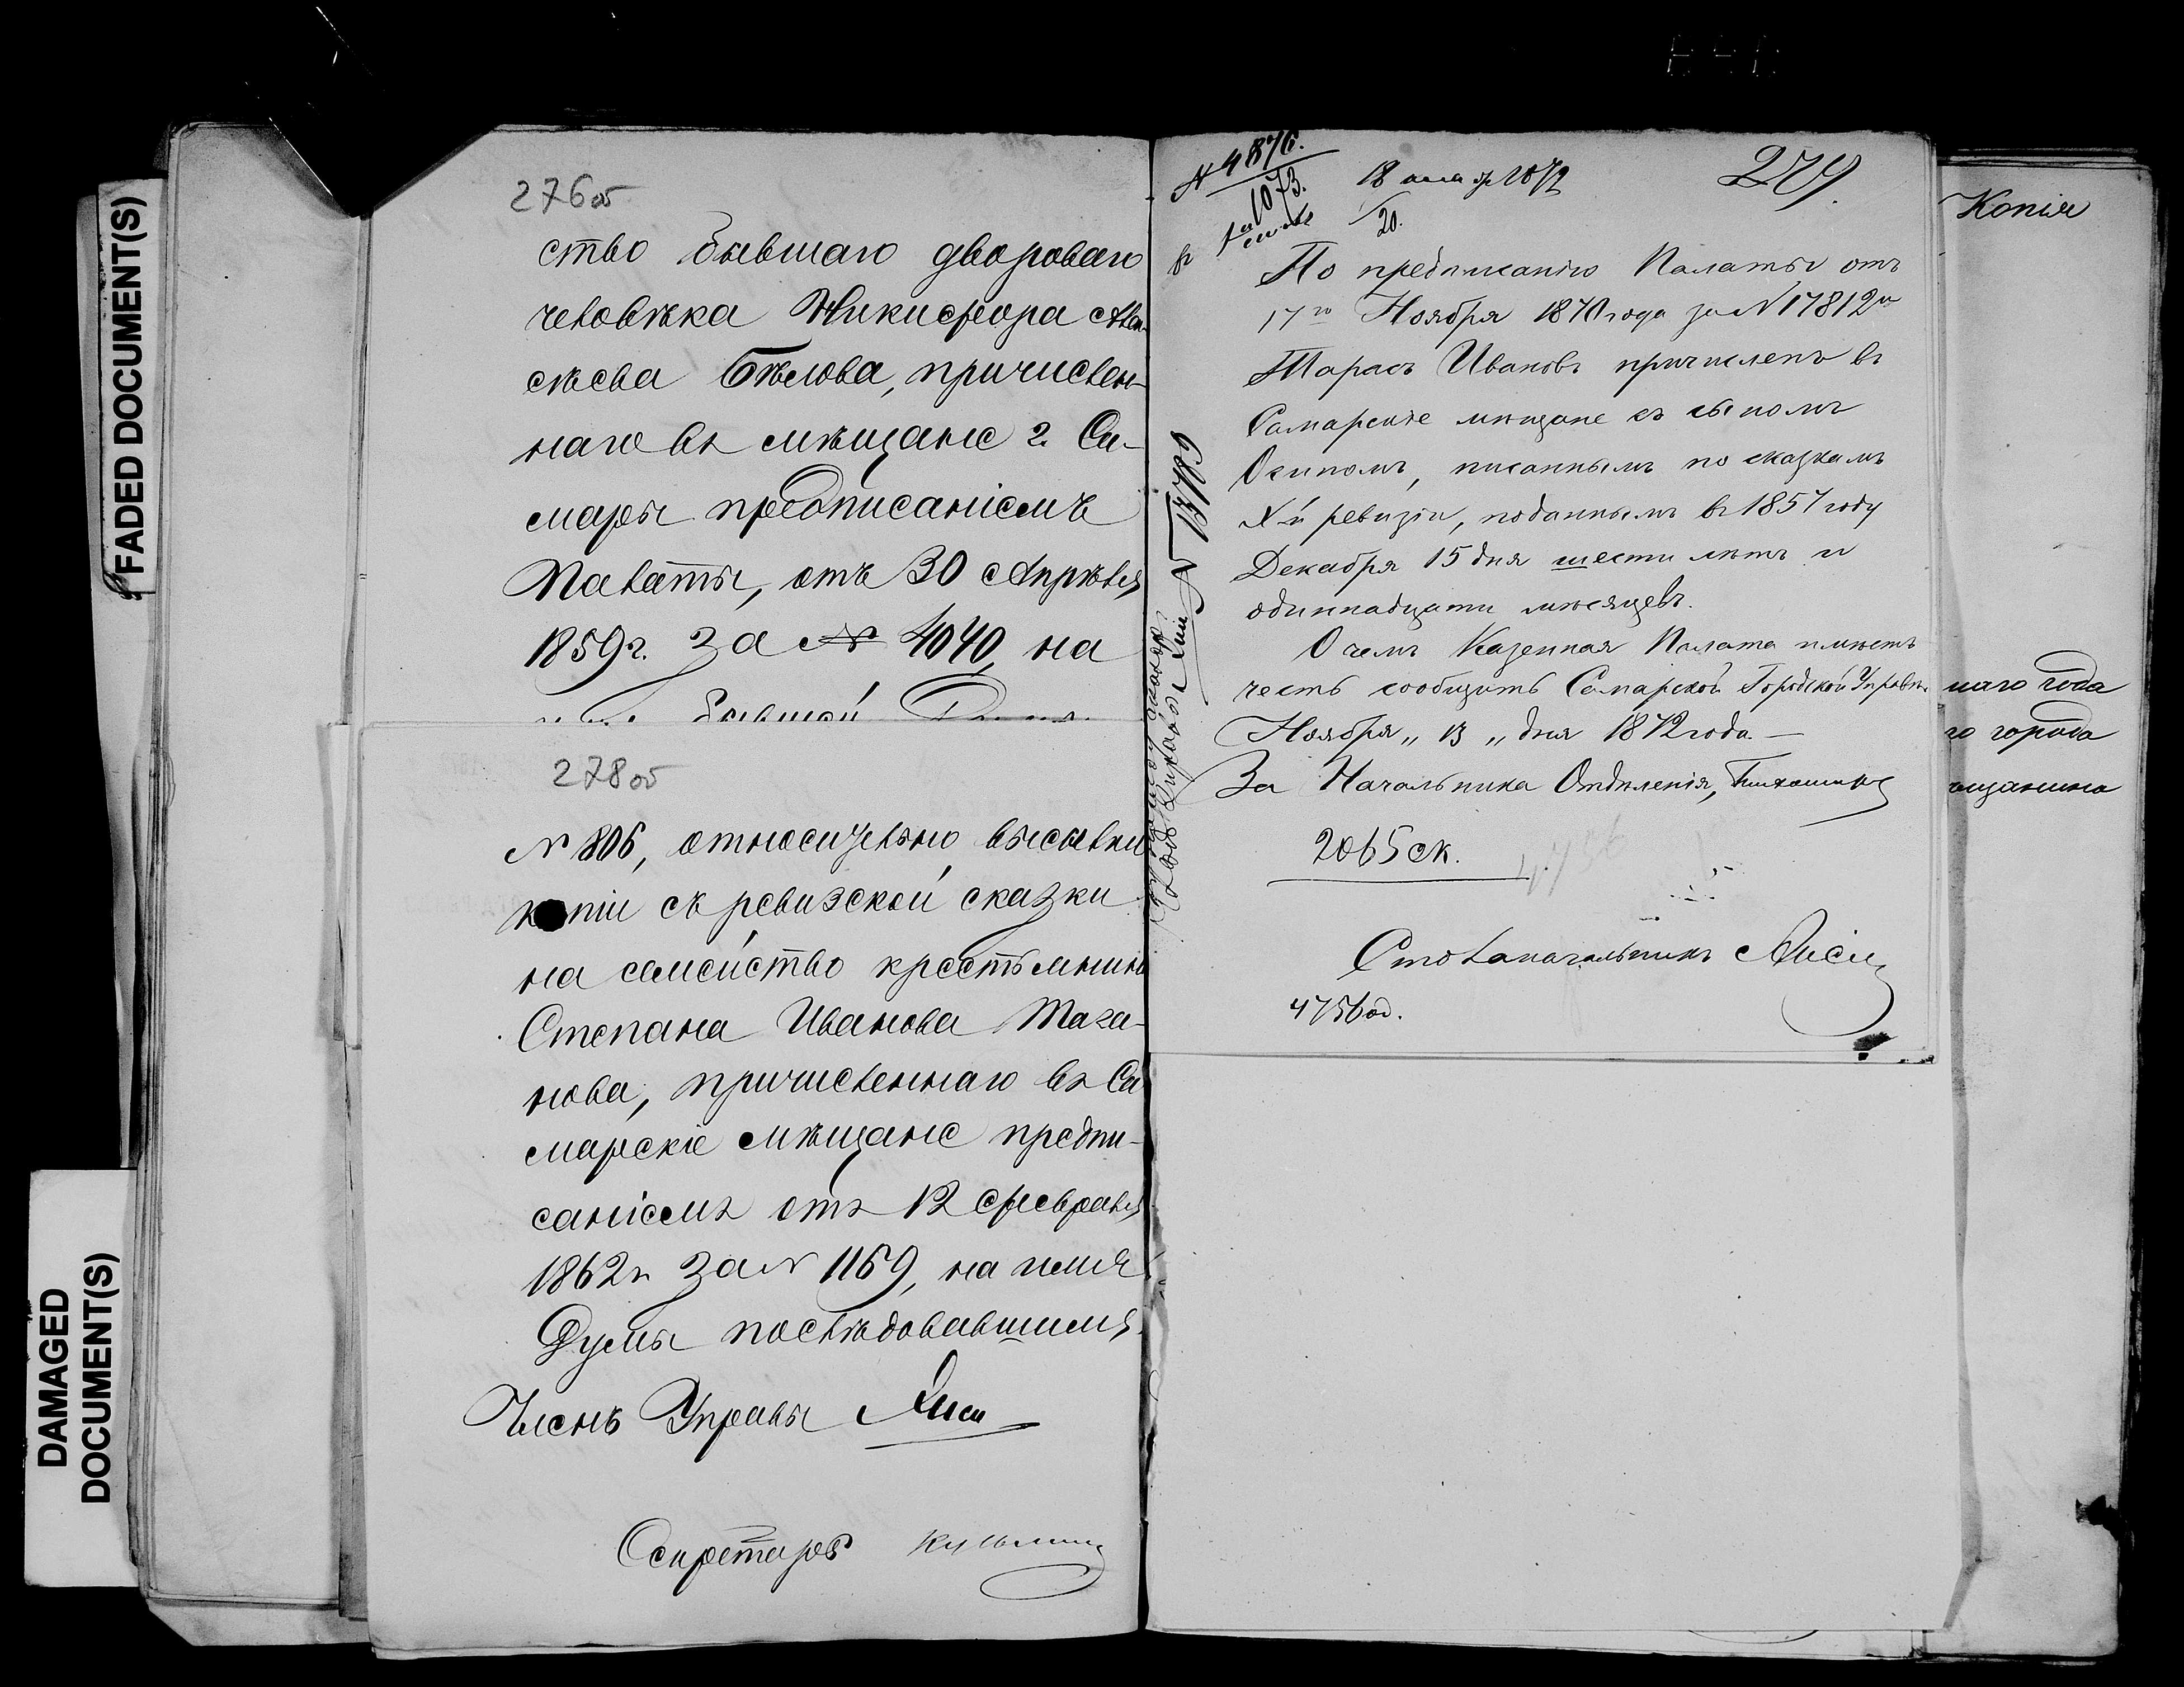 FADED DOCUMENT(S)
DAMAGED
DOCUMENT(S)
276об
ство бывшаго двороваго
человѣка Никифора Алек-
сѣева Бѣлова, причислен-
наго въ мѣщане г. Са-
мары предписаніемъ
Палаты, отъ 30 Апрѣля
1859 г. за № 4040, на
бывшей
278об
№ 806, относительно высылки
копіи съ ревизской сказки
на семейство крестьянина
Степана Иванова Таза-
нова, причисленнаго въ Са
марскіе мѣщане предпи-
саніемъ отъ 12 февраля
1862 г. за № 1169, на имя
Думы послѣдовавшимъ.
Членъ Управы
Секретарь
№ 4876.
1073.
18 1872
20.
279
По предписанію Палаты отъ
17го Ноября 1870 года за № 17812м
Тарасъ Ивановъ причисленъ въ
Самарскіе мѣщане съ сыномъ
Осипомъ, писаннымъ по сказкамъ
X й ревизіи, поданнымъ въ 1857 году
Декабря 15 дня шести лѣтъ и
одиннадцати мѣсяцевъ.
О чемъ Казенная Палата имѣетъ
честь сообщить Самарской Городской Управѣ.
Ноября „ 13 „ дня 1872 года. —
За Начальника Отдѣленія,
2065 ск.
Столоначальникъ
4756 од.
Копія
наго года
го города
ѣщанина